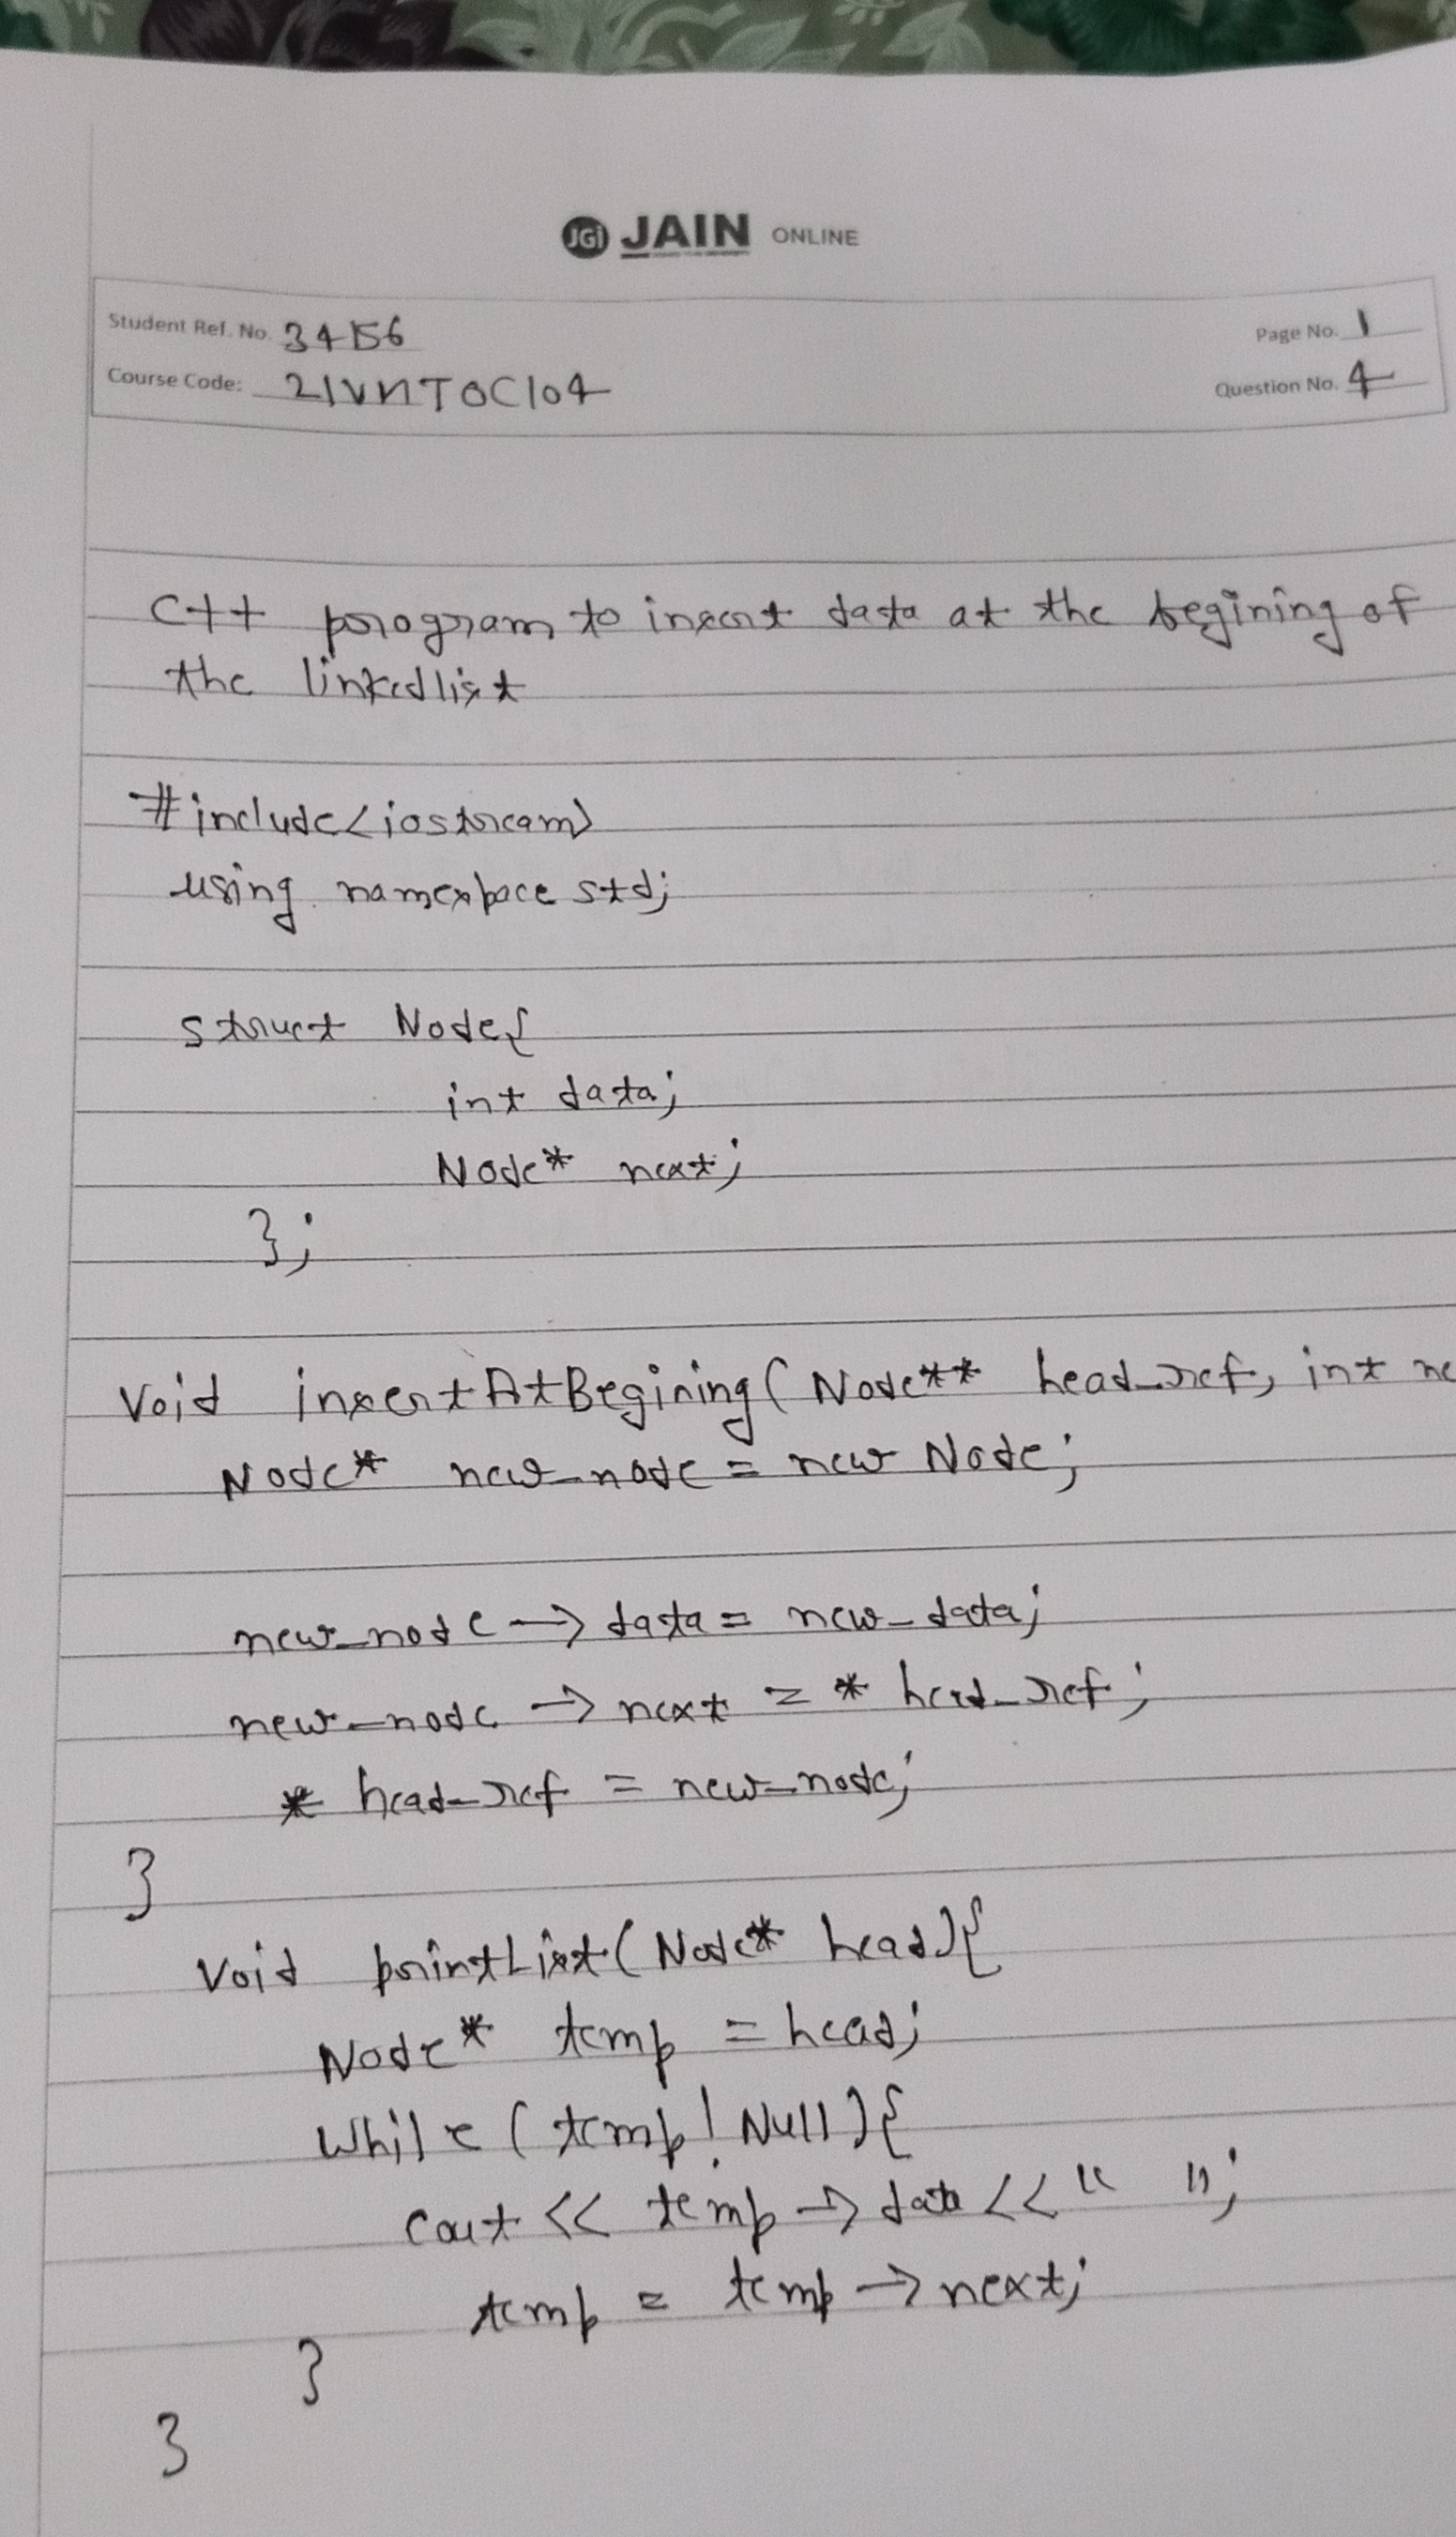 JGi JAIN ONLINE
Student Ref. No. 34156
Page No. 1
Course Code: 21VMT0C104
Question No. 4
C++ program to insert data at the begining of
the linkedlist
#include<iostream>
using namespace std;
struct Node{
int data;
Node* next;
};
Void insertAtBegining(Node** head_ref, int ne
Node* new_node = new Node;
new_node -> data = new_data;
new_node -> next = * head_ref;
* head_ref = new_node;
}
Void printList(Node* head){
Node* temp = head;
While (temp ! Null){
Cout << temp -> data << " ";
temp = temp -> next;
}
}